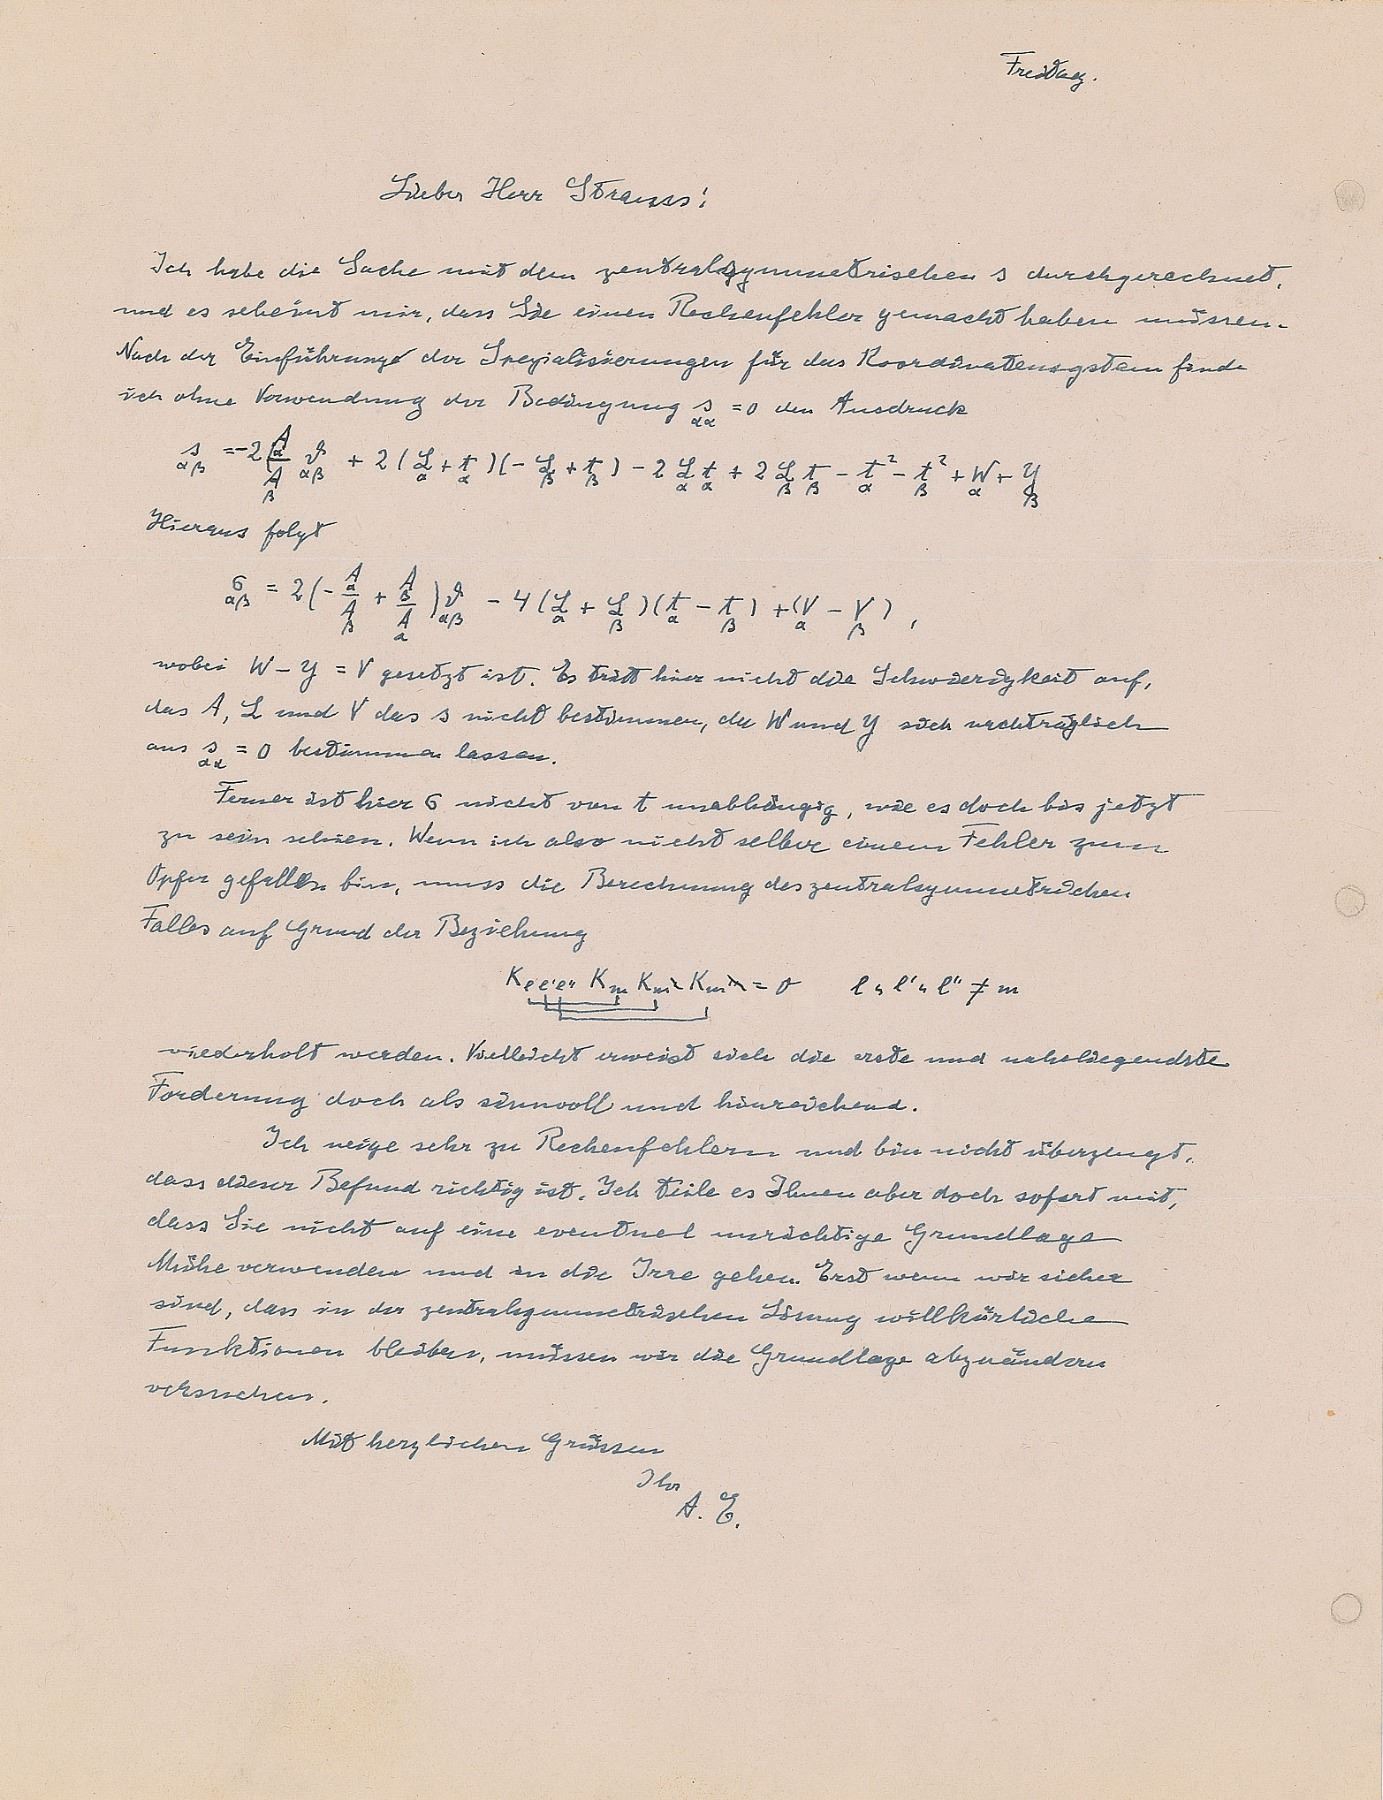 Freitag.
Lieber Herr Strauss!
Ich habe die Sache mit dem zentralsymmetrischen s durchgerechnet,
und es scheint mir, dass Sie einen Rechenfehler gemacht haben müssen.
Nach der Einführung der Spezialisierungen für das Koordinatensystem finde
ich ohne Verwendung der Bedingung s_αα = 0 den Ausdruck
s_αβ = -2 (A_α / A_β) ϑ_αβ + 2 (L_α + t_α)(- L_β + t_β) - 2 L_α t_α + 2 L_β t_β - t_α² - t_β² + W_α + Y_β
Hieraus folgt
σ_αβ = 2 (- A_α / A_β + A_β / A_α) ϑ_αβ - 4 (L_α + L_β)(t_α - t_β) + (V_α - V_β),
wobei W - Y = V gesetzt ist. Es tritt hier nicht die Schwierigkeit auf,
das A, L und V das s nicht bestimmen, da W und Y sich nachträglich
aus s_αα = 0 bestimmen lassen.
Ferner ist hier σ nicht von t unabhängig, wie es doch bis jetzt
zu sein schien. Wenn ich also nicht selber einem Fehler zum
Opfer gefallen bin, muss die Berechnung des zentralsymmetrischen
Falles auf Grund der Beziehung
K_l l' l'' K_m K_m K_m = 0 l, l', l'' ≠ m
wiederholt werden. Vielleicht erweist sich die erste und naheliegendste
Forderung doch als sinnvoll und hinreichend.
Ich neige sehr zu Rechenfehlern und bin nicht überzeugt,
dass dieser Befund richtig ist. Ich teile es Ihnen aber doch sofort mit,
dass Sie nicht auf eine eventuel unrichtige Grundlage
Mühe verwenden und in die Irre gehen. Erst wenn wir sicher
sind, dass in der zentralsymmetrischen Lösung willkürliche
Funktionen bleiben, müssen wir die Grundlage abzuändern
versuchen.
Mit herzlichen Grüssen
Ihr
A. E.